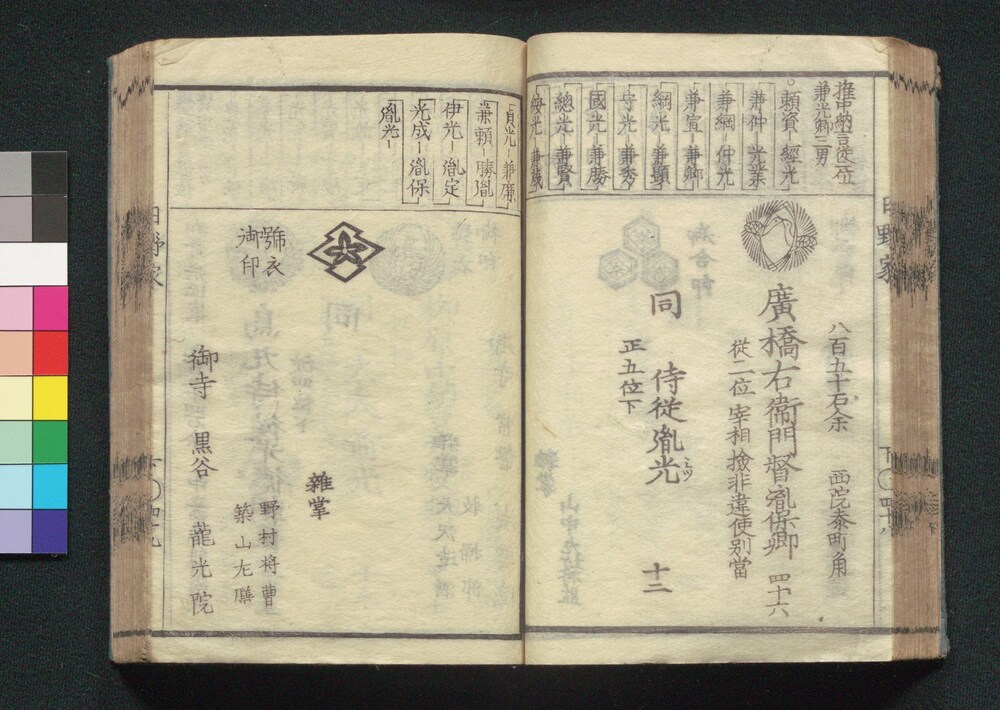 推中納言従一位
兼光卿三男
頼資－經光
兼仲－光業
兼綱－仲光
兼宣－兼郷
綱光－兼顕
守光－兼秀
國光－兼勝
總光－兼賢
綏光－兼茂
八百五十石余
西院参町角
廣橋右衛門督胤保卿 四十六
従二位 宰相 撿非違使別當
同 侍従胤光 十二
ミツ
正五位下
日野家
下〇四十八
貞光－兼廉
兼頼－勝胤
伊光－胤定
光成－胤保
胤光－
號衣
御印
雜掌
野村将曹
築山左膳
御寺 黒谷 龍光院
日野家
下〇四十九